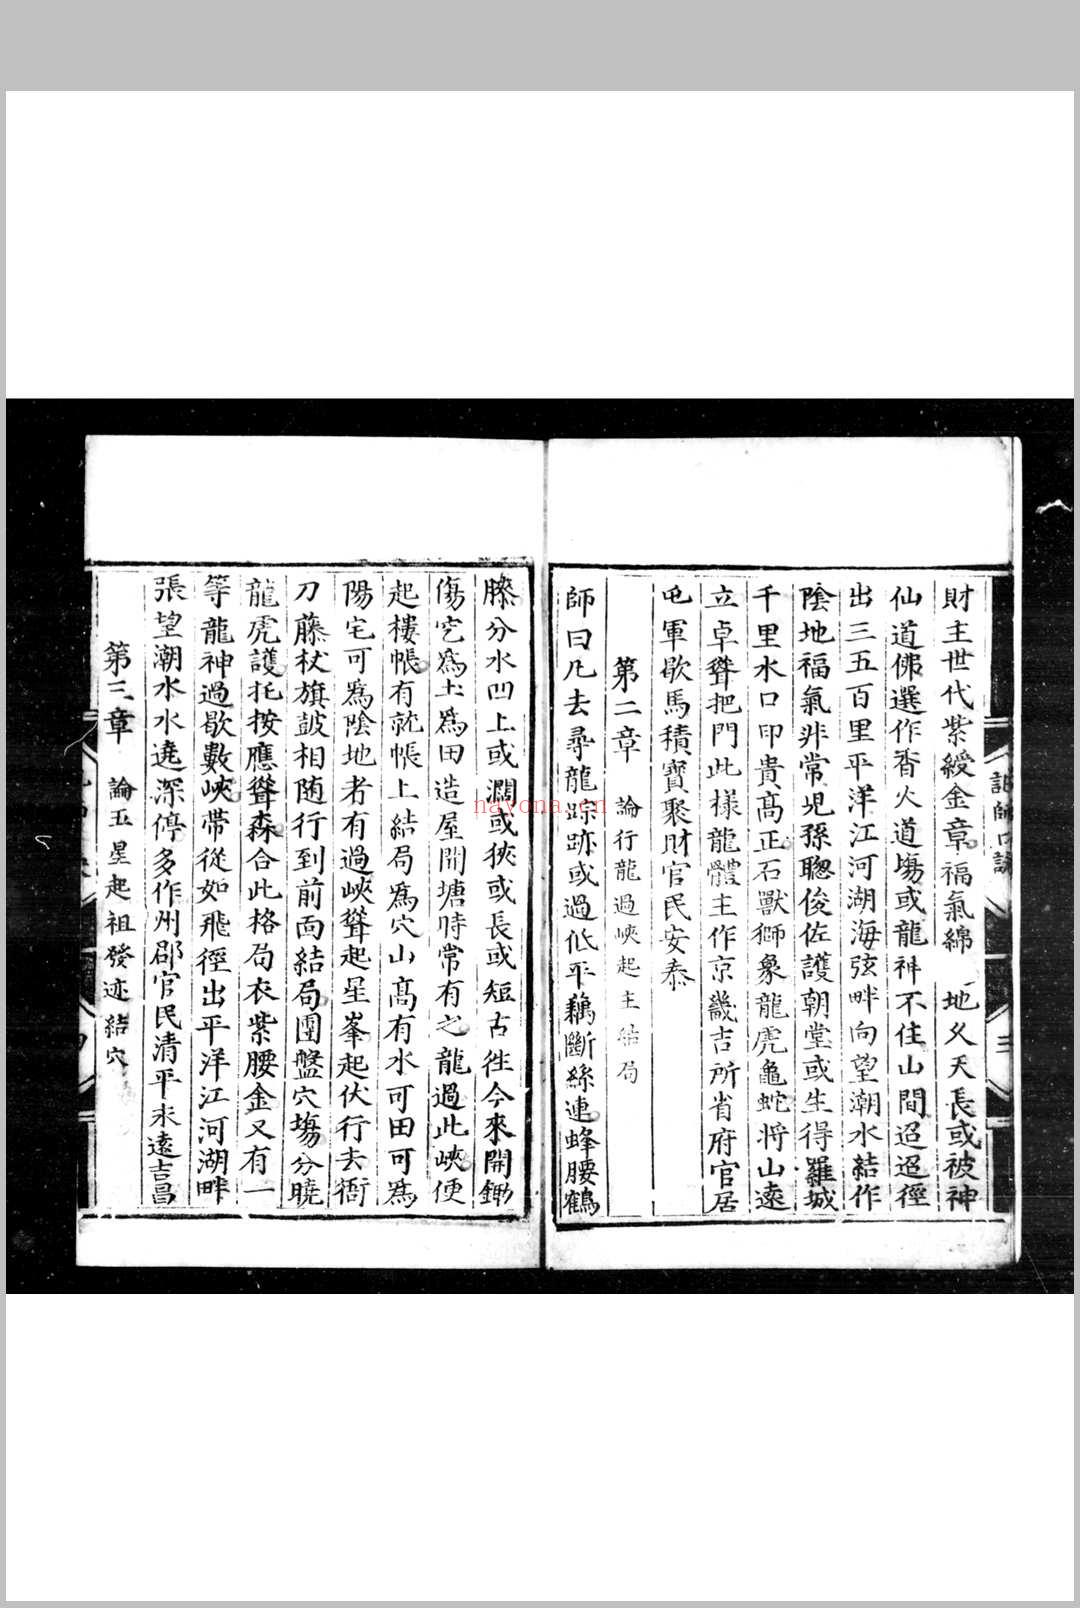 財主世代紫綬金章福氣綿 地久天長或被神
仙道佛選作香火道塲或龍神不住山間迢迢徑
出三五百里平洋江河湖海弦畔向望潮水結作
陰地福氣非常兒孫聰俊佐護朝堂或生得羅城
千里水口印貴高正石獸獅象龍虎龜蛇將山遠
立卓聳把門此樣龍體主作京畿吉所省府官居
屯軍歇馬積寶聚財官民安泰
第二章 論行龍過峽起主結局
師曰凡去尋龍踪跡或過低平藕斷絲連蜂腰鶴
膝分水凹上或濶或狹或長或短古徃今來開鋤
傷宅爲土爲田造屋開塘時常有之龍過此峽便
起樓帳有就帳上結局爲穴山高有水可田可爲
陽宅可爲陰地者有過峽聳起星峯起伏行去衙
刀藤杖旗皷相随行到前面結局團盤穴塲分曉
龍虎護托按應聳森合此格局衣紫腰金又有一
等龍神過歇數峽帶從如飛徑出平洋江河湖畔
張望潮水水遶深停多作州郡官民清平永遠吉昌
第三章 論五星起祖發迹結穴
師口訣
三
nayona.cn